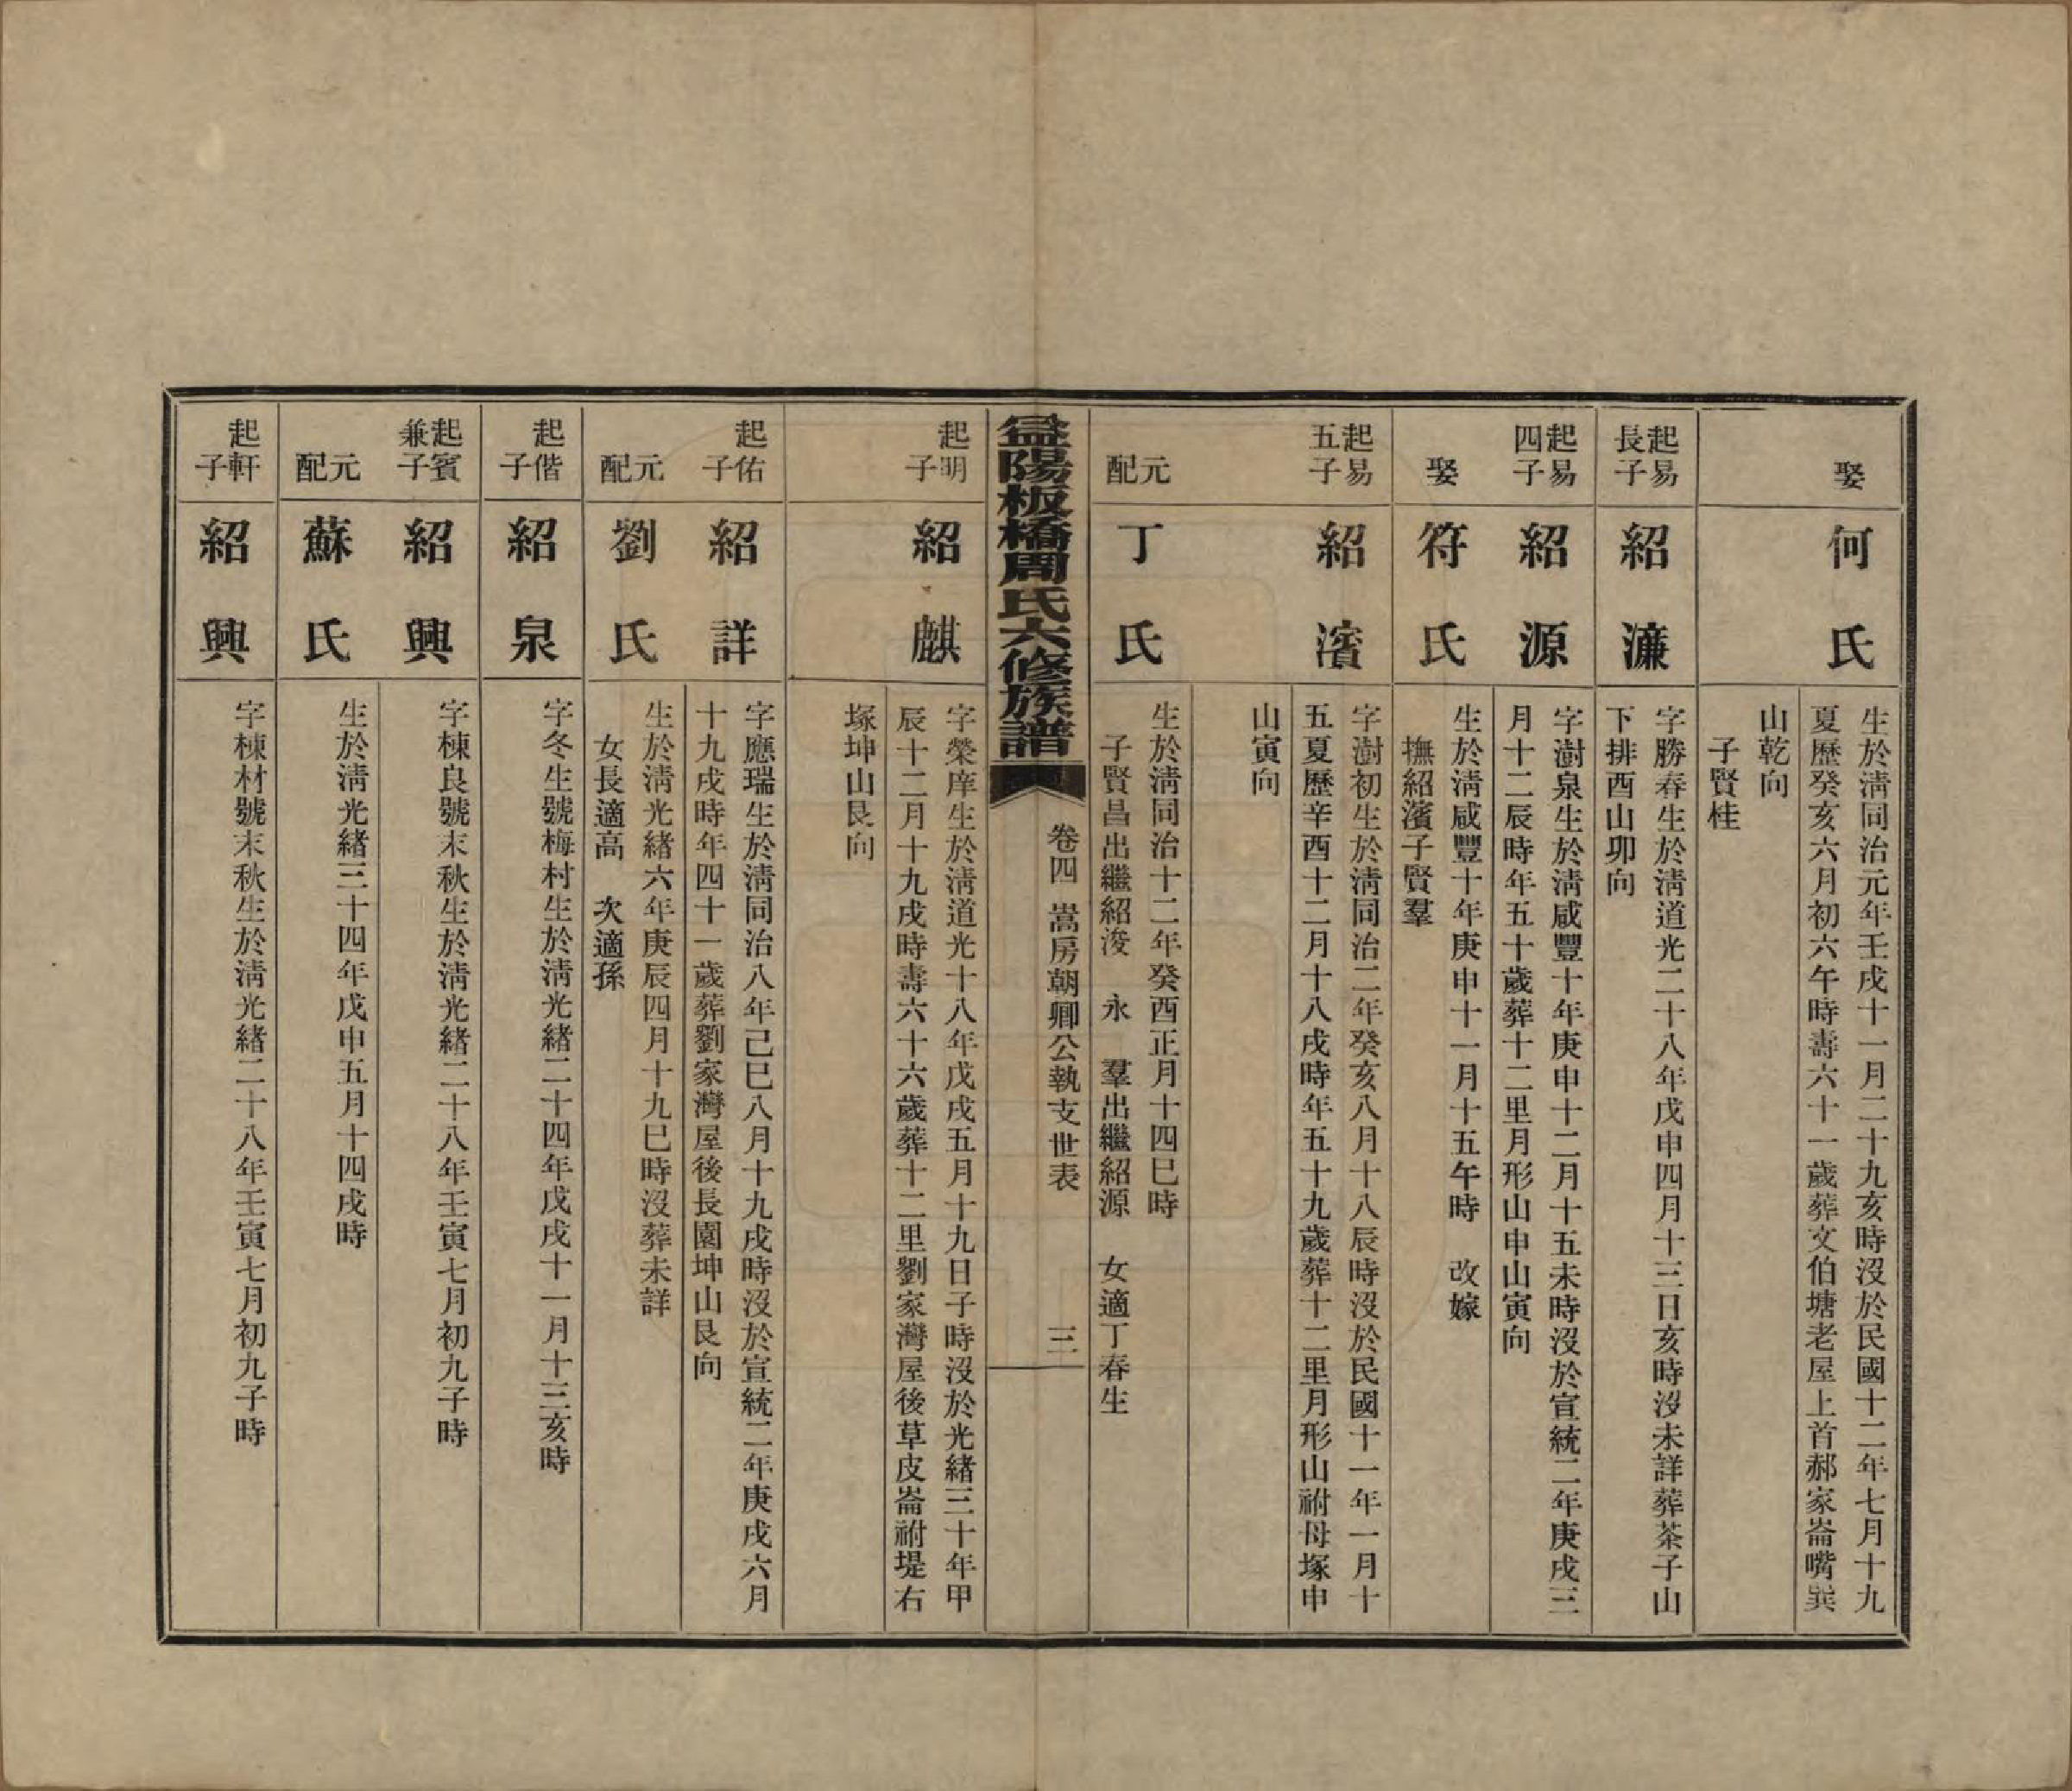 娶
何氏
生於淸同治元年壬戌十一月二十九亥時沒於民國十二年七月十九
夏歷癸亥六月初六午時壽六十一歲葬文伯塘老屋上首郝家崙嘴巽
山乾向
子賢桂
起易
長子
紹濂
字勝春生於淸道光二十八年戊申四月十三日亥時沒未詳葬茶子山
下排酉山卯向
起易
四子
紹源
字澍泉生於淸咸豐十年庚申十二月十五未時沒於宣統二年庚戌三
月十二辰時年五十歲葬十二里月形山申山寅向
娶
符氏
生於淸咸豐十年庚申十一月十五午時　改嫁
撫紹濱子賢羣
起易
五子
紹濱
字澍初生於淸同治二年癸亥八月十八辰時沒於民國十一年一月十
五夏歷辛酉十二月十八戌時年五十九歲葬十二里月形山祔母塚申
山寅向
元配
丁氏
生於淸同治十二年癸酉正月十四巳時
子賢昌出繼紹浚　永　羣出繼紹源　女適丁春生
益陽板橋周氏六修族譜
卷四　嵩房朝卿公執支世表
三
起明
子
紹麒
字榮庠生於淸道光十八年戊戌五月十九日子時沒於光緒三十年甲
辰十二月十九戌時壽六十六歲葬十二里劉家灣屋後草皮崙祔堤右
塚坤山艮向
起佑
子
紹詳
字應瑞生於淸同治八年己巳八月十九戌時沒於宣統二年庚戌六月
十九戌時年四十一歲葬劉家灣屋後長園坤山艮向
元配
劉氏
生於淸光緒六年庚辰四月十九巳時沒葬未詳
女長適高　次適孫
起偕
子
紹泉
字冬生號梅村生於淸光緒二十四年戊戌十一月十三亥時
起賓
兼子
紹興
字棟良號末秋生於淸光緒二十八年壬寅七月初九子時
元配
蘇氏
生於淸光緒三十四年戊申五月十四戌時
起軒
子
紹興
字棟材號末秋生於淸光緒二十八年壬寅七月初九子時